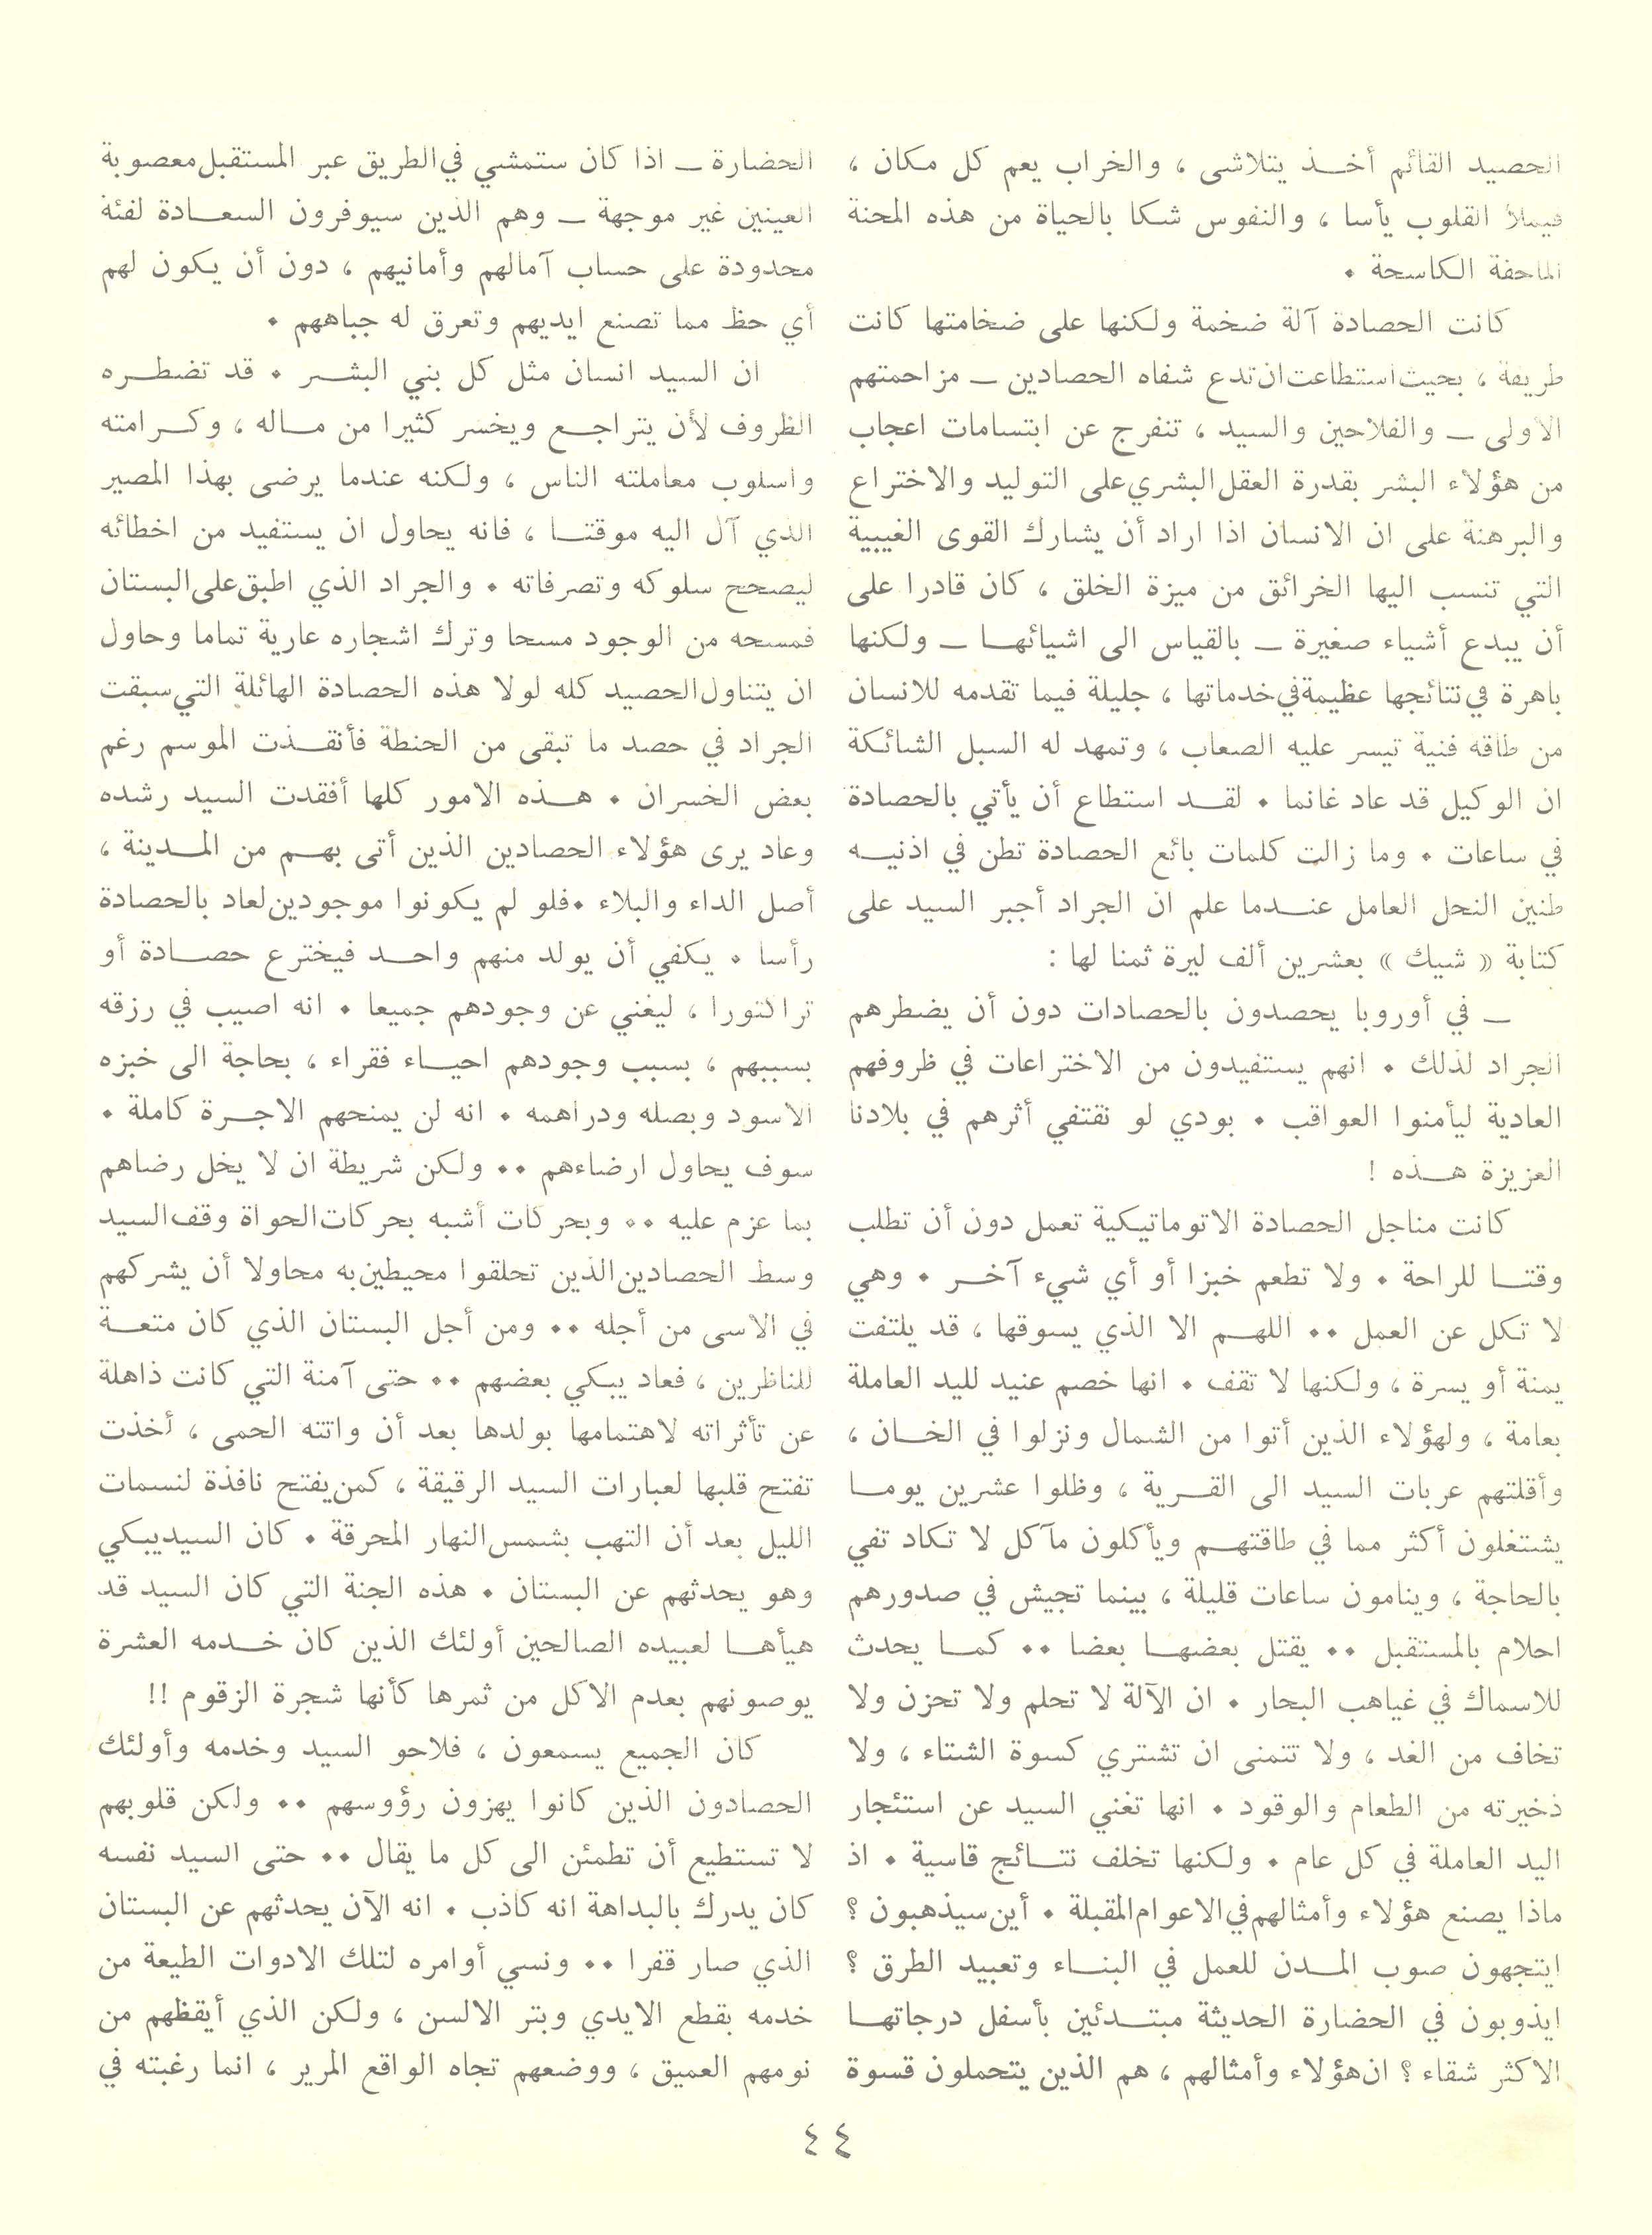 الحصيد القائم أخــذ يتلاشى ، والخراب يعم كل مكان ،
فيملأ القلوب يأسا ، والنفوس شكا بالحياة من هذه المحنة
الماحقة الكاسحة ٠
كانت الحصادة آلة ضخمة ولكنها على ضخامتها كانت
طريفة ، بحيث استطاعت ان تدع شفاه الحصادين ـ مزاحمتهم
الاولى ـ والفلاحين والسيد ، تنفرج عن ابتسامات اعجاب
من هؤلاء البشر بقدرة العقل البشري على التوليد والاختراع
والبرهنة على ان الانسان اذا اراد أن يشارك القوى الغيبية
التي تنسب اليها الخرائق من ميزة الخلق ، كان قادرا على
أن يبدع أشياء صغيرة ـ بالقياس الى اشيائهــا ـ ولكنها
باهرة في نتائجها عظيمة في خدماتها ، جليلة فيما تقدمه للانسان
من طاقه فنية تيسر عليه الصعاب ، وتمهد له السبل الشائكة
ان الوكيل قد عاد غانما ٠ لقــد استطاع أن يأتي بالحصادة
في ساعات ٠ وما زالت كلمات بائع الحصادة تطن في اذنيــه
طنين النحل العامل عنــدما علم ان الجراد أجبر السيد على
كتابة « شيك » بعشرين ألف ليرة ثمنا لها :
ـ في أوروبا يحصدون بالحصادات دون أن يضطرهم
الجراد لذلك ٠ انهم يستفيدون من الاختراعات في ظروفهم
العادية ليأمنوا العواقب ٠ بودي لو نقتفي أثرهم في بلادنا
العزيزة هــذه !
كانت مناجل الحصادة الاتوماتيكية تعمل دون أن تطلب
وقتــا للراحة ٠ ولا تطعم خبزا أو أي شيء آخــر ٠ وهي
لا تكل عن العمل ٠٠ اللهــم الا الذي يسوقها ، قد يلتفت
يمنة أو يسرة ، ولكنها لا تقف ٠ انها خصم عنيد لليد العاملة
بعامة ، ولهؤلاء الذين أتوا من الشمال ونزلوا في الخــان ،
وأقلتهم عربات السيد الى القــرية ، وظلوا عشرين يومــا
يشتغلون أكثر مما في طاقتهــم ويأكلون مآكل لا تكاد تفي
بالحاجة ، وينامون ساعات قليلة ، بينما تجيش في صدورهم
احلام بالمستقبل ٠٠ يقتل بعضهــا بعضا ٠٠ كمــا يحدث
للاسماك في غياهب البحار ٠ ان الآلة لا تحلم ولا تحزن ولا
تخاف من الغد ، ولا تتمنى ان تشتري كسوة الشتاء ، ولا
ذخيرته من الطعام والوقود ٠ انها تغني السيد عن استئجار
اليد العاملة في كل عام ٠ ولكنها تخلف نتــائج قاسية ٠ اذ
ماذا يصنع هؤلاء وأمثالهم في الاعوام المقبلة ٠ أين سيذهبون ؟
ايتجهون صوب المــدن للعمل في البنــاء وتعبيد الطرق ؟
ايذوبون في الحضارة الحديثة مبتــدئين بأسفل درجاتهــا
الاكثر شقاء ؟ ان هؤلاء وأمثالهم ، هم الذين يتحملون قسوة
الحضارة ـ اذا كان ستمشي في الطريق عبر المستقبل معصوبة
العينين غير موجهة ـ وهم الذين سيوفرون السعــادة لفئة
محدودة على حساب آمالهم وأمانيهم ، دون أن يكون لهم
أي حظ مما تصنع ايديهم وتعرق له جباههم ٠
ان السيد انسان مثل كل بني البشــر ٠ قد تضطــره
الظروف لأن يتراجــع ويخسر كثيرا من مــاله ، وكــرامته
واسلوب معاملته الناس ، ولكنه عندما يرضى بهذا المصير
الذي آل اليه موقتــا ، فانه يحاول ان يستفيد من اخطائه
ليصحح سلوكه وتصرفاته ٠ والجراد الذي اطبق على البستان
فمسحه من الوجود مسحا وترك اشجاره عارية تماما وحاول
ان يتناول الحصيد كله لولا هذه الحصادة الهائلة التي سبقت
الجراد في حصد ما تبقى من الحنطة فأنقــذت الموسم رغم
بعض الخسران ٠ هــذه الامور كلها أفقدت السيد رشده
وعاد يرى هؤلاء الحصادين الذين أتى بهــم من المــدينة ،
أصل الداء والبلاء ٠ فلو لم يكونوا موجودين لعاد بالحصادة
رأسا ٠ يكفي أن يولد منهم واحــد فيخترع حصــادة أو
تراكتورا ، ليغني عن وجودهم جميعا ٠ انه اصيب في رزقه
بسببهم ، بسبب وجودهم احيــاء فقراء ، بحاجة الى خبزه
الاسود وبصله ودراهمه ٠ انه لن يمنحهم الاجــرة كاملة ٠
سوف يحاول ارضاءهم ٠٠ ولكن شريطة ان لا يخل رضاهم
بما عزم عليه ٠٠ وبحركات أشبه بحركات الحواة وقف السيد
وسط الحصادين الذين تحلقوا محيطين به محاولا أن يشركهم
في الاسى من أجله ٠٠ ومن أجل البستان الذي كان متعــة
للناظرين ، فعاد يبكي بعضهم ٠٠ حتى آمنة التي كانت ذاهلة
عن تأثراته لاهتمامها بولدها بعد أن واتته الحمى ، أخذت
تفتح قلبها لعبارات السيد الرقيقة ، كمن يفتح نافذة لنسمات
الليل بعد أن التهب بشمس النهار المحرقة ٠ كان السيد يبكي
وهو يحدثهم عن البستان ٠ هذه الجنة التي كان السيد قد
هيأهــا لعبيده الصالحين أولئك الذين كان خــدمه العشرة
يوصونهم بعدم الاكل من ثمرها كأنها شجرة الزقوم !!
كان الجميع يسمعون ، فلاحو السيد وخدمه وأولئك
الحصادون الذين كانوا يهزون رؤوسهم ٠٠ ولكن قلوبهم
لا تستطيع أن تطمئن الى كل ما يقال ٠٠ حتى السيد نفسه
كان يدرك بالبداهة انه كاذب ٠ انه الآن يحدثهم عن البستان
الذي صار قفرا ٠٠ ونسي أوامره لتلك الادوات الطيعة من
خدمه بقطع الايدي وبتر الالسن ، ولكن الذي أيقظهم من
نومهم العميق ، ووضعهم تجاه الواقع المرير ، انما رغبته في
٤٤